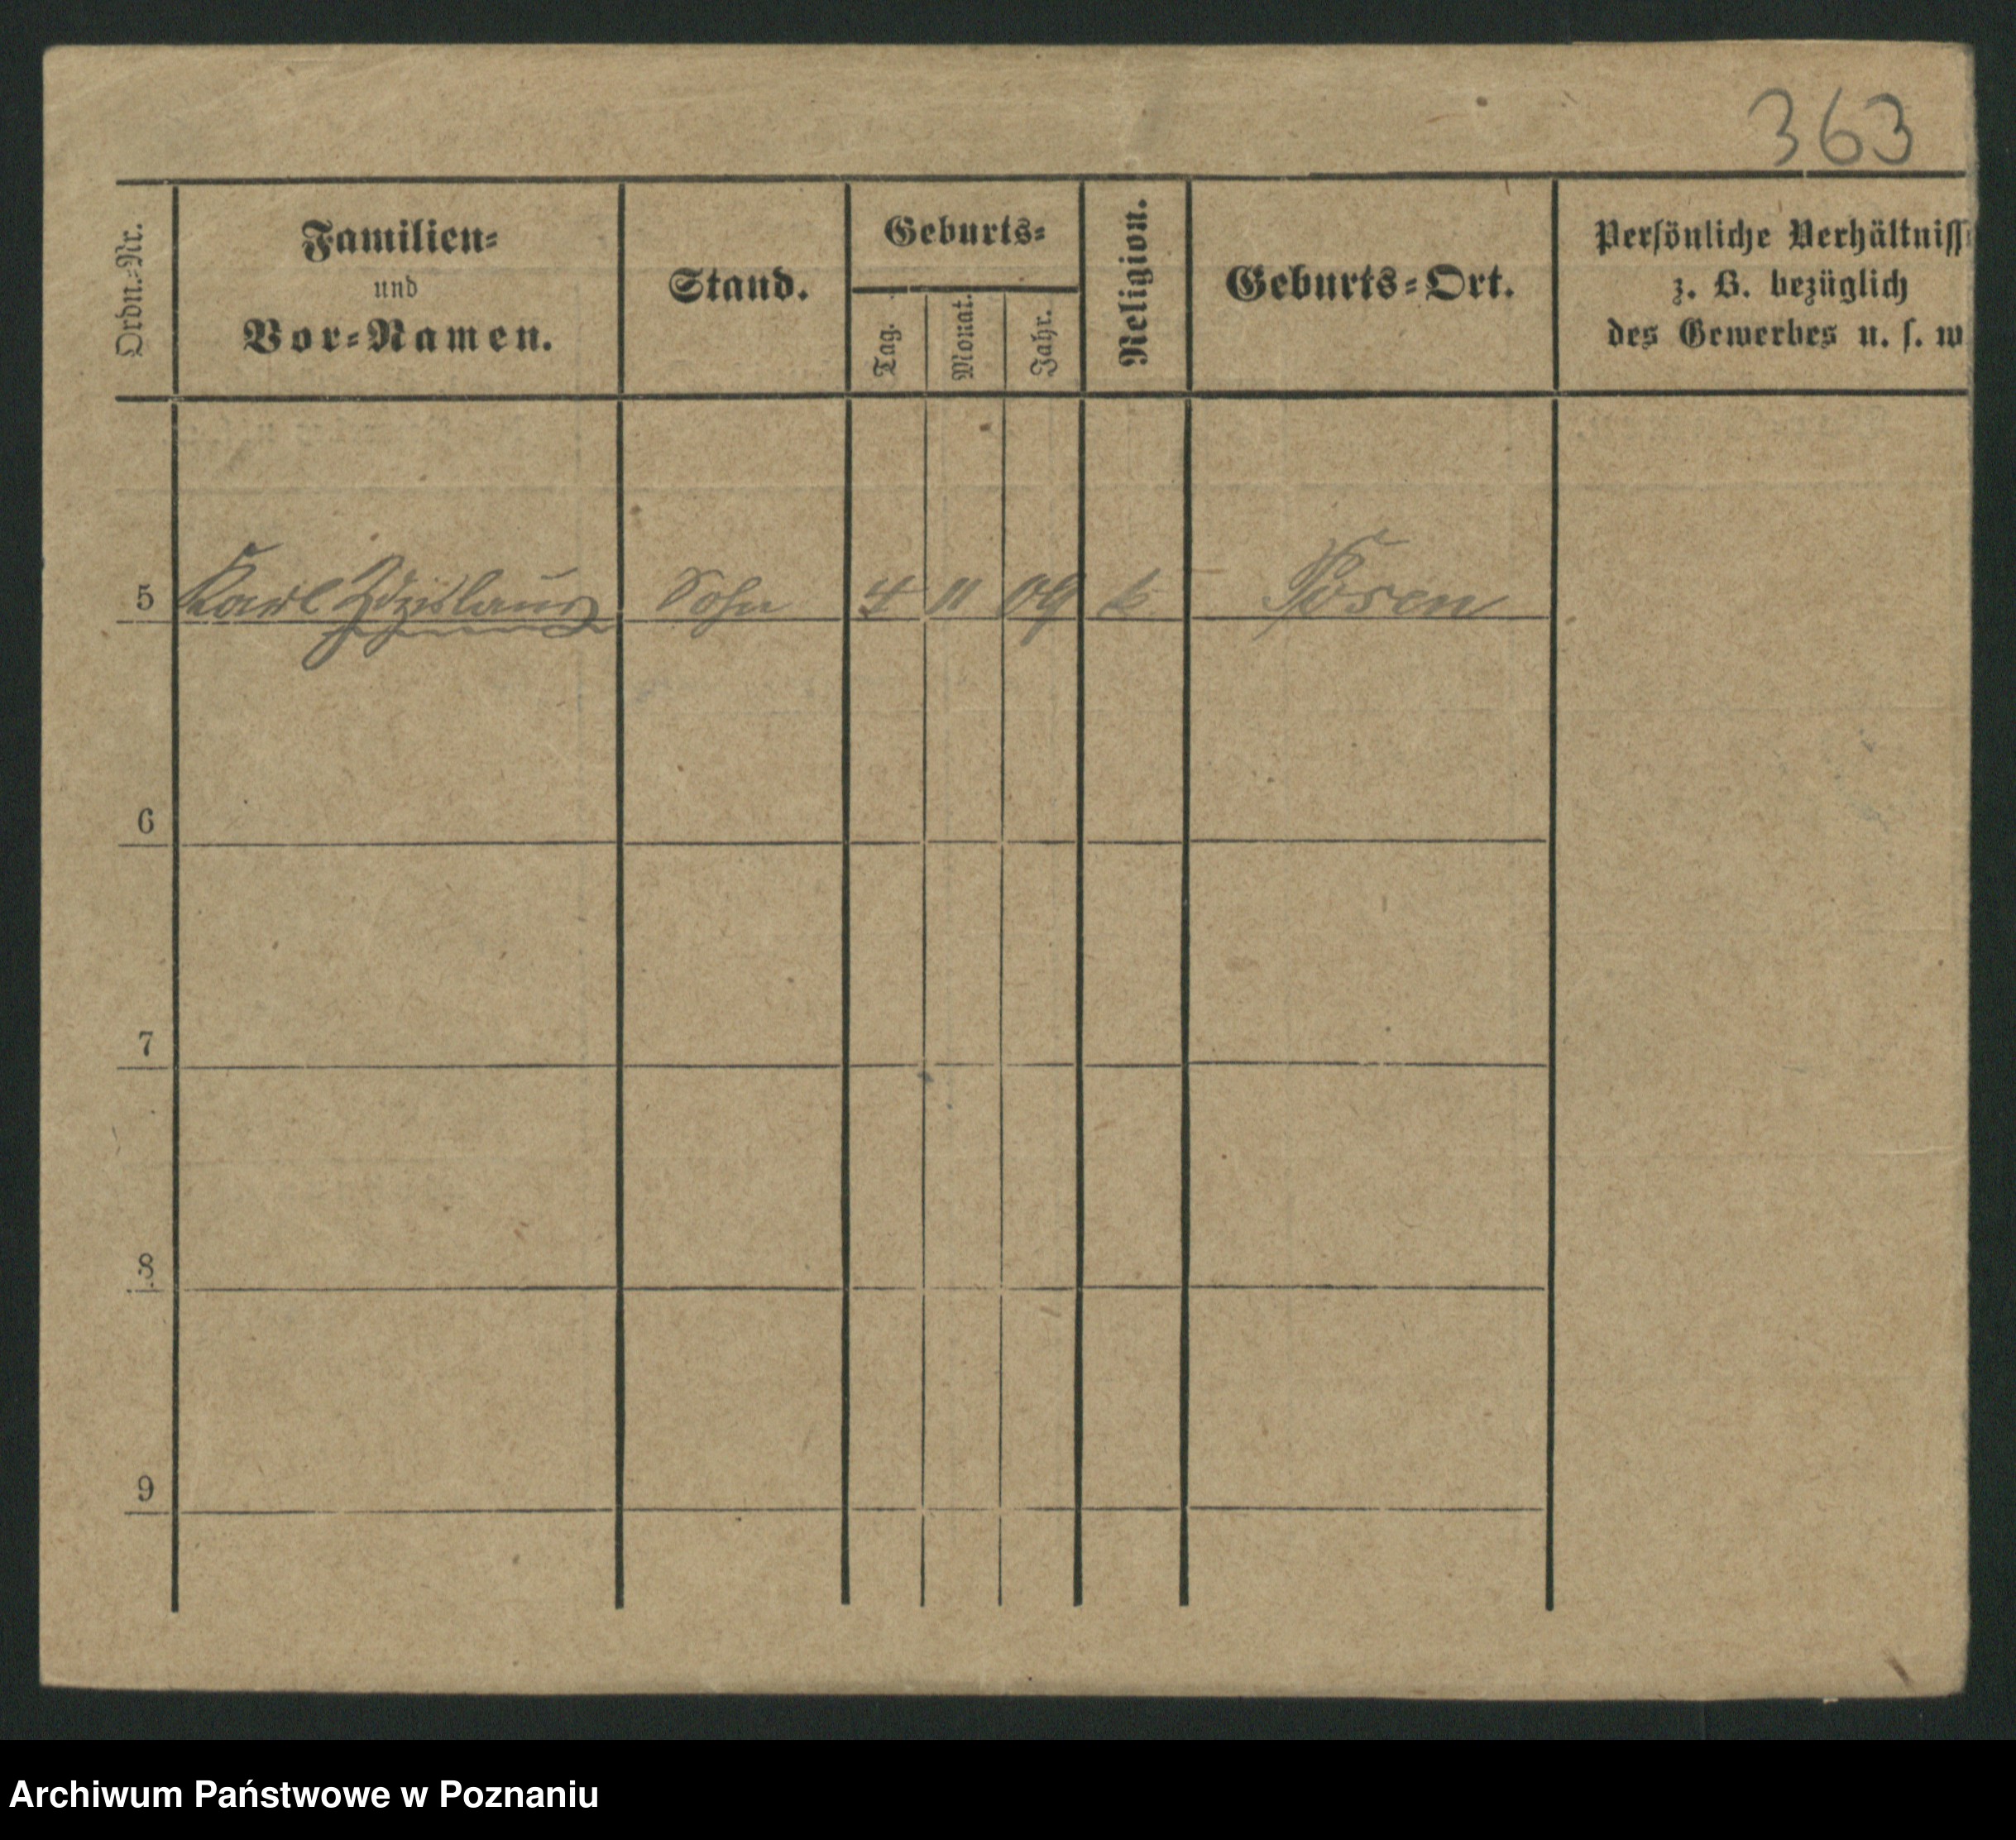 363
Ordn.-Nr.
Familien-
und
Vor-Namen.
Stand.
Geburts-
Tag.
Monat.
Jahr.
Religion.
Geburts-Ort.
Persönliche Verhältniss
z. B. bezüglich
des Gewerbes u. s. w
5 Karl Zdzislaus Sohn 4 11 09 k Posen
6
7
8
9
Archiwum Państwowe w Poznaniu